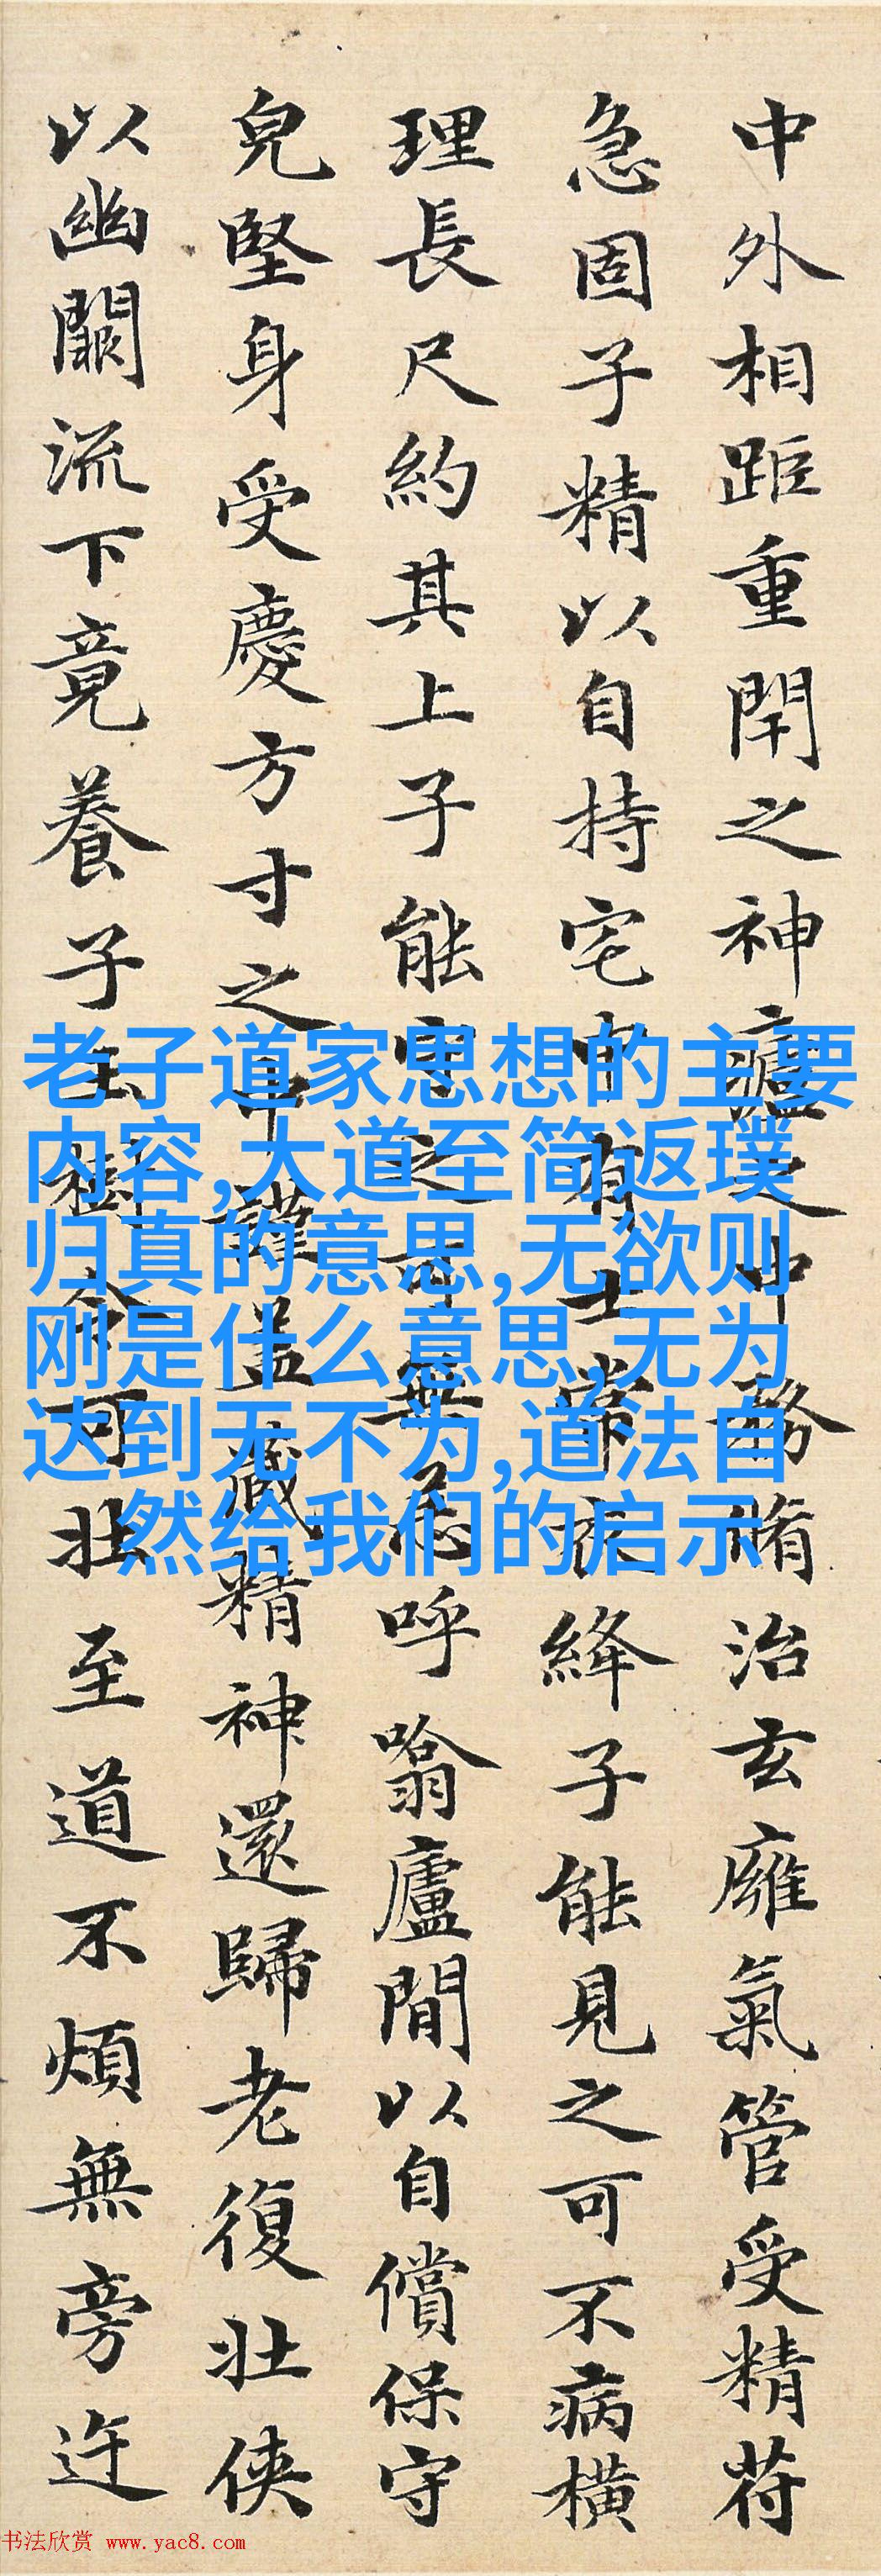 中外相距重閇之神廬之中務脩治玄廱氣管受精苻
急固子精以自持宅中有士常衣絳子能見之可不病橫
理長尺約其上子能守之可無恙呼噏廬間以自償保守
皃堅身受慶方寸之中謹盖藏精神還歸老復壯俠
以幽闕流下竟養子玉樹令可壯至道不煩無旁迕
老子道家思想的主要
内容,大道至简返璞
归真的意思,无欲则
刚是什么意思,无为
达到无不为,道法自
然给我们的启示
书法欣赏 www.yac8.com